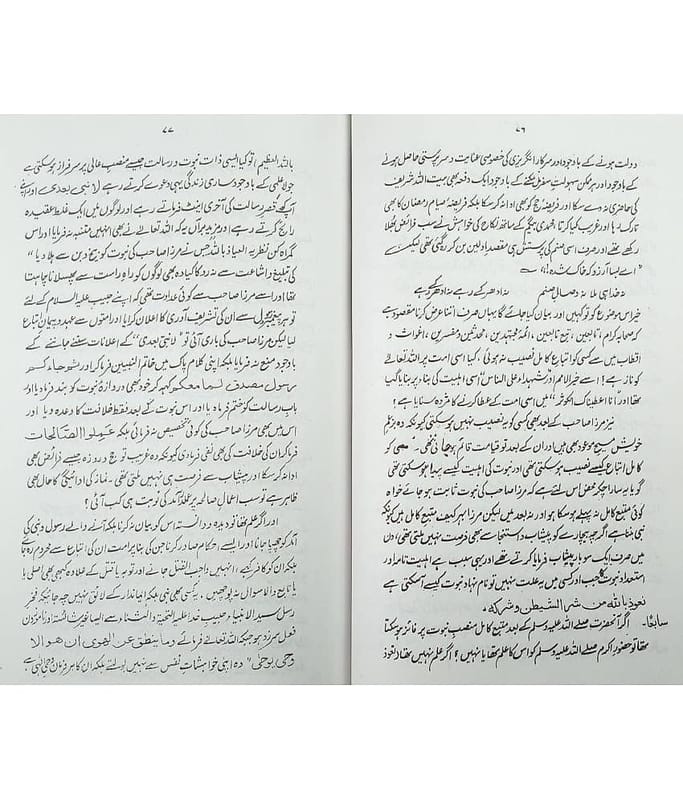 ۷۶
دولت ہونے کے باوجود اور سرکار انگریزی کی خصوصی عنایت و سرپرستی حاصل ہونے
کے باوجود اور ہر ممکن سہولتِ سفر مل سکنے کے باوجود ایک دفعہ بھی بیت اللہ شریف
کی حاضری نہ دے سکا اور فریضہ حج کو بھی ادا نہ کر سکا بلکہ فریضہ صیام رمضان کا بھی
تارک رہا اور غریب کیا کرتا، محمدی بیگم کے ساتھ نکاح کی خواہش نے سب فرائض بھلا
رکھے تھے اور صرف اسی صنم کی پرستش ہی مقصد اولین بن کر رہ گئی تھی لیکن ؎
" اے بسا آرزو کہ خاک شدہ "!!
نہ خدا ہی ملا نہ وصالِ صنم نہ ادھر کے رہے نہ ادھر کے رہے
خیر اس موضوع کو تو کہیں اور بیان کیا جائے گا یہاں صرف اتنا عرض کرنا مقصود ہے
کہ صحابہ کرام، تابعین، تبع تابعین، ائمہ مجتہدین، محدثین و مفسرین، اغواث و
اقطاب میں سے کسی کو اتباع کامل نصیب نہ ہوئی، کیا اسی امت پر اللہ تعالےٰ
کو ناز ہے! اسے خیر الامم اور شہداء علی الناس" اسی اہلیت کی بناء پر بنایا گیا
تھا اور انا اعطیناک الکوثر" میں اسی امت کے عطا کرنے کا مژدہ سنایا ہے؟
نیز مرزا صاحب کے بعد بھی کسی کو یہ نصیب نہیں ہو سکتی کیونکہ وہ بزعمِ
خویش مسیح موعود بھی ہیں اور ان کے بعد تو قیامت قائم ہو جانی تھی۔ کسی کو
کامل اتباع کیسے نصیب ہو سکتی تھی اور نبوت کی اہلیت کیسے پیدا ہو سکتی تھی
گویا یہ سارا چکر محض اس لئے ہے کہ مرزا صاحب کی نبوت ثابت ہو جائے خواہ
کوئی متبع کامل نہ پہلے ہو سکا ہو اور نہ بعد میں لیکن مرزا بہر کیف متبع کامل ہیں کیونکہ
نبی بننا ہے اگرچہ بیچارے کو پیشاب و استنجا سے بھی فرصت نہیں ملتی تھی (دن
میں صرف ایک سو بار پیشاب فرمایا کرتے تھے اور یہی سبب ہے اہلیت تامہ اور
استعداد نبوت کا جب اور کسی میں یہ علت نہیں تو نام نہاد نبوت کیسے آ سکتی ہے
نعوذ باللہ من شر الشیطن و شرکہ۔
سابعًا۔ اگر آنحضرت صلے اللہ علیہ وسلم کے بعد متبع کامل منصبِ نبوت پر فائز ہو سکتا
تھا تو حضور اکرم صلے اللہ علیہ وسلم کو اس کا علم تھا یا نہیں؟ اگر علم نہیں تھا (نعوذ
۷۷
باللہ العظیم) تو کیا ایسی ذات نبوت و رسالت جیسے منصبِ عالی پر سرفراز ہو سکتی ہے
جو لاعلمی کے باوجود ساری زندگی یہی دعوے کرتے رہے لا نبی بعدی اور اپنے
آپ کے قصرِ رسالت کی آخری اینٹ فرماتے رہے اور لوگوں میں ایک غلط عقیدہ
رائج کرتے رہے اور مزید برآں یہ کہ اللہ تعالےٰ نے بھی انہیں متنبہ نہ فرمایا اور اس
گمراہ کن نظریہ العیاذ باللہ جس نے مرزا صاحب کی نبوت کو بیخ و بن سے ہلا دیا"
کی تبلیغ و اشاعت سے نہ روکا کیا وہ بھی لوگوں کو راہِ راست سے پھسلانا چاہتا
تھا اور اسے مرزا صاحب سے کوئی عداوت تھی کہ اپنے حبیب علیہ السلام کے لئے
تو سب پیغمبروں سے ان کی تشریف آوری کا اعلان کرایا اور امتوں سے عہد و پیمان اتباع
لیا لیکن مرزا صاحب کی باری آئی تو "لا نبی بعدی" کے اعلانات سننے جاننے کے
باوجود منع نہ فرمایا بلکہ اپنی کلام پاک میں خاتم النبیین فرما کر اور ثم جاءکم
رسول مصدق لما معکم کہہ کر خود بھی دروازۂ نبوت کو بند فرما دیا اور
باب رسالت کو ختم فرما دیا اور اس نبوت کے بعد فقط خلافت کا وعدہ دیا اور
اس میں بھی مرزا صاحب کی کوئی تخصیص نہ فرمائی بلکہ عملوا الصالحات
فرما کر ان کی خلافت کی بھی نفی فرما دی کیونکہ وہ غریب تو حج و روزہ جیسے فرائض بھی
ادا نہ کر سکا اور پیشاب سے فرصت ہی نہیں ملتی تھی۔ نماز کی ادائیگی کا حال بھی
ظاہر ہے تو سب اعمال صالحہ پر عملدرآمد کی نوبت ہی کب آئی؟
اور اگر علم تھا تو دیدہ و دانستہ اس کو بیان نہ کرنا بلکہ آنے والے رسول و نبی کی
آمد کو چھپا جانا اور ایسے احکام صادر کرنا جن کی بناء پر امت ان کی اتباع سے محروم رہ جائے
بلکہ ان کو کافر کہے، انہیں واجب القتل جانے اور توبہ یا قتل کے علاوہ کبھی بھی اصلی یا
یا تابع و الاسوال نہ پوچھیں، یہ کسی بھی نبی بلکہ ایماندار کے لائق نہیں چہ جائیکہ فخرِ
رسل سید الانبیاء و حبیبِ خدا علیہ التحیۃ والثناء سے ایسا غیر شائستہ اور ناموزوں
فعل سرزد ہو جبکہ اللہ تعالےٰ فرمائے وما ینطق عن الھوی ان ھو الا
وحی یوحی" وہ اپنی خواہشاتِ نفس سے نہیں بولتے بلکہ ان کا ہر فرمان وحی الٰہی ہے